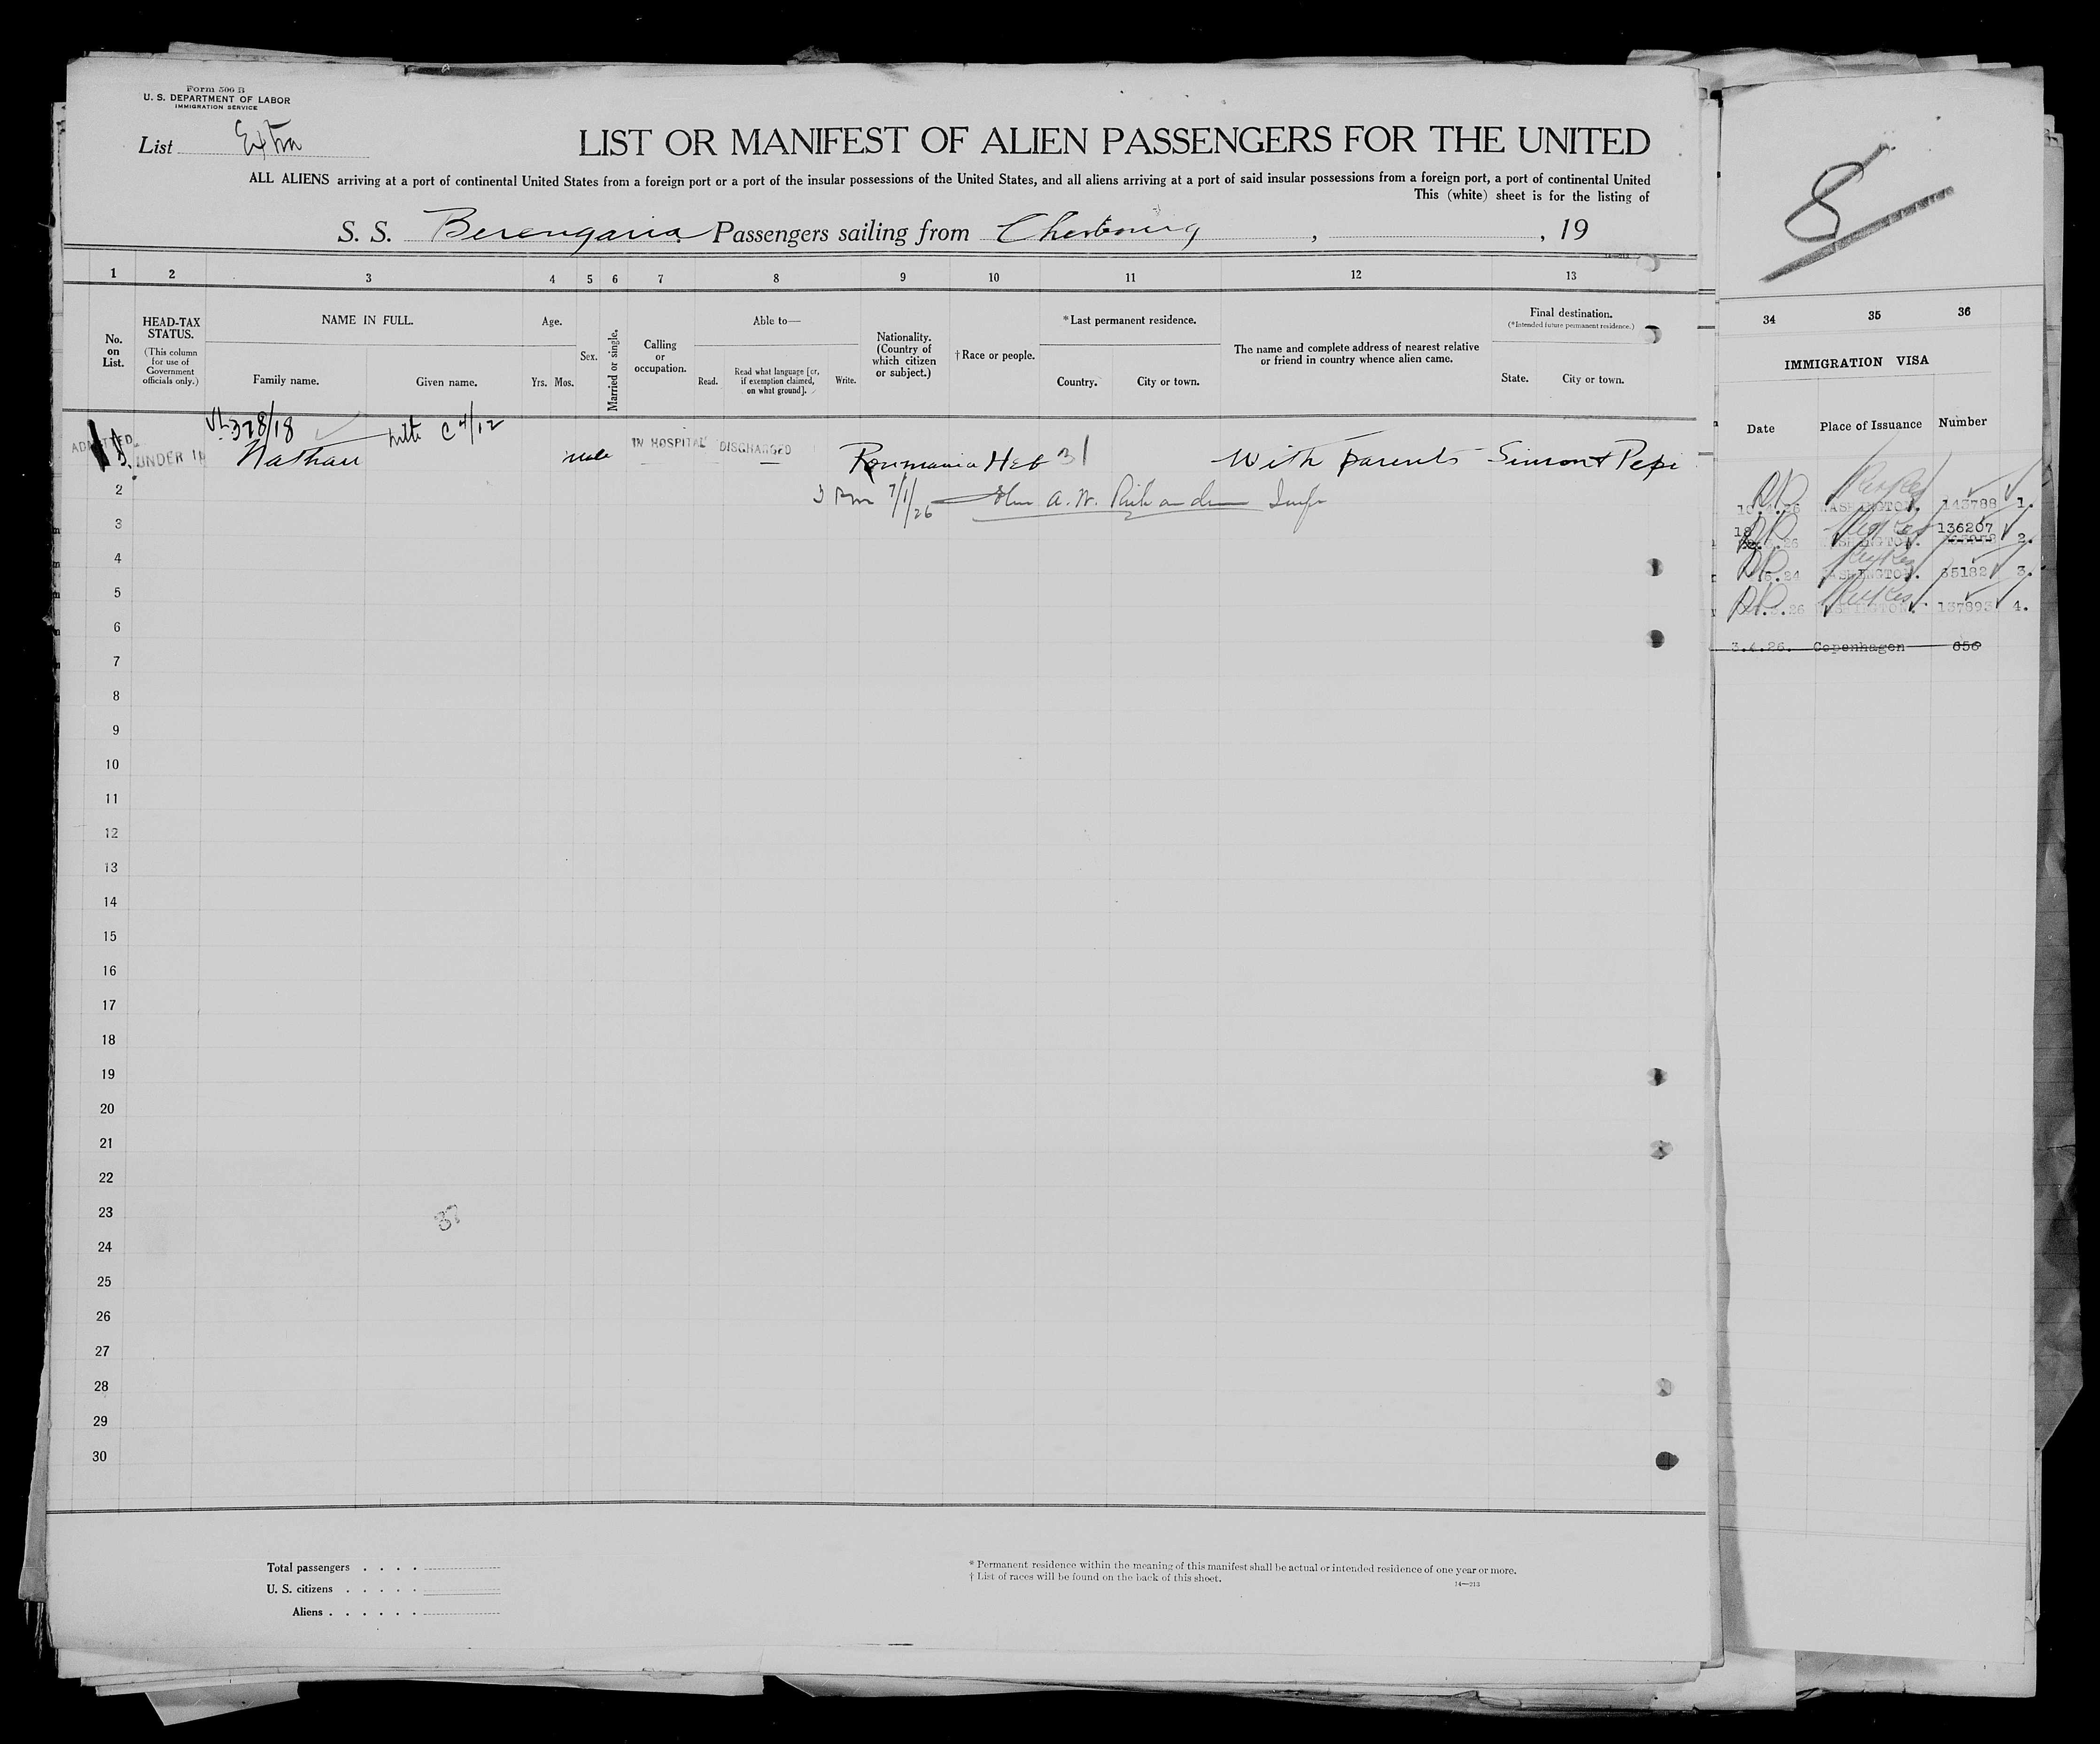 Form 500 B
U. S. DEPARTMENT OF LABOR
IMMIGRATION SERVICE
List Extra
LIST OR MANIFEST OF ALIEN PASSENGERS FOR THE UNITED
ALL ALIENS arriving at a port of continental United States from a foreign port or a port of the insular possessions of the United States, and all aliens arriving at a port of said insular possessions from a foreign port, a port of continental United
This (white) sheet is for the listing of
S. S. Berengaria Passengers sailing from Cherbourg, , 19
1 2 3 4 5 6 7 8 9 10 11 12 13
No. on List.
HEAD-TAX STATUS.
(This column for use of Government officials only.)
NAME IN FULL.
Family name. Given name.
Age.
Yrs. Mos.
Sex.
Married or single.
Calling or occupation.
Able to—
Read. Read what language [or, if exemption claimed, on what ground]. Write.
Nationality. (Country of which citizen or subject.)
† Race or people.
* Last permanent residence.
Country. City or town.
The name and complete address of nearest relative or friend in country whence alien came.
Final destination.
(* Intended future permanent residence.)
State. City or town.
328/18 C 4/12
ADMITTED UNDER Nathan male IN HOSPITAL DISCHARGED Roumania Heb 31 With parents Simon & Pepi
7/1/26 A. W. Insp
2
3
4
5
6
7
8
9
10
11
12
13
14
15
16
17
18
19
20
21
22
23
37
24
25
26
27
28
29
30
Total passengers . . . .
U. S. citizens . . . . .
Aliens . . . . . .
* Permanent residence within the meaning of this manifest shall be actual or intended residence of one year or more.
† List of races will be found on the back of this sheet.
14—213
8
34 35 36
IMMIGRATION VISA
Date Place of Issuance Number
WASHINGTON. 143788 1.
136207
WASHINGTON. 2.
WASHINGTON. 65182 3.
WASHINGTON. 137893 4.
3.4.26. Copenhagen 656